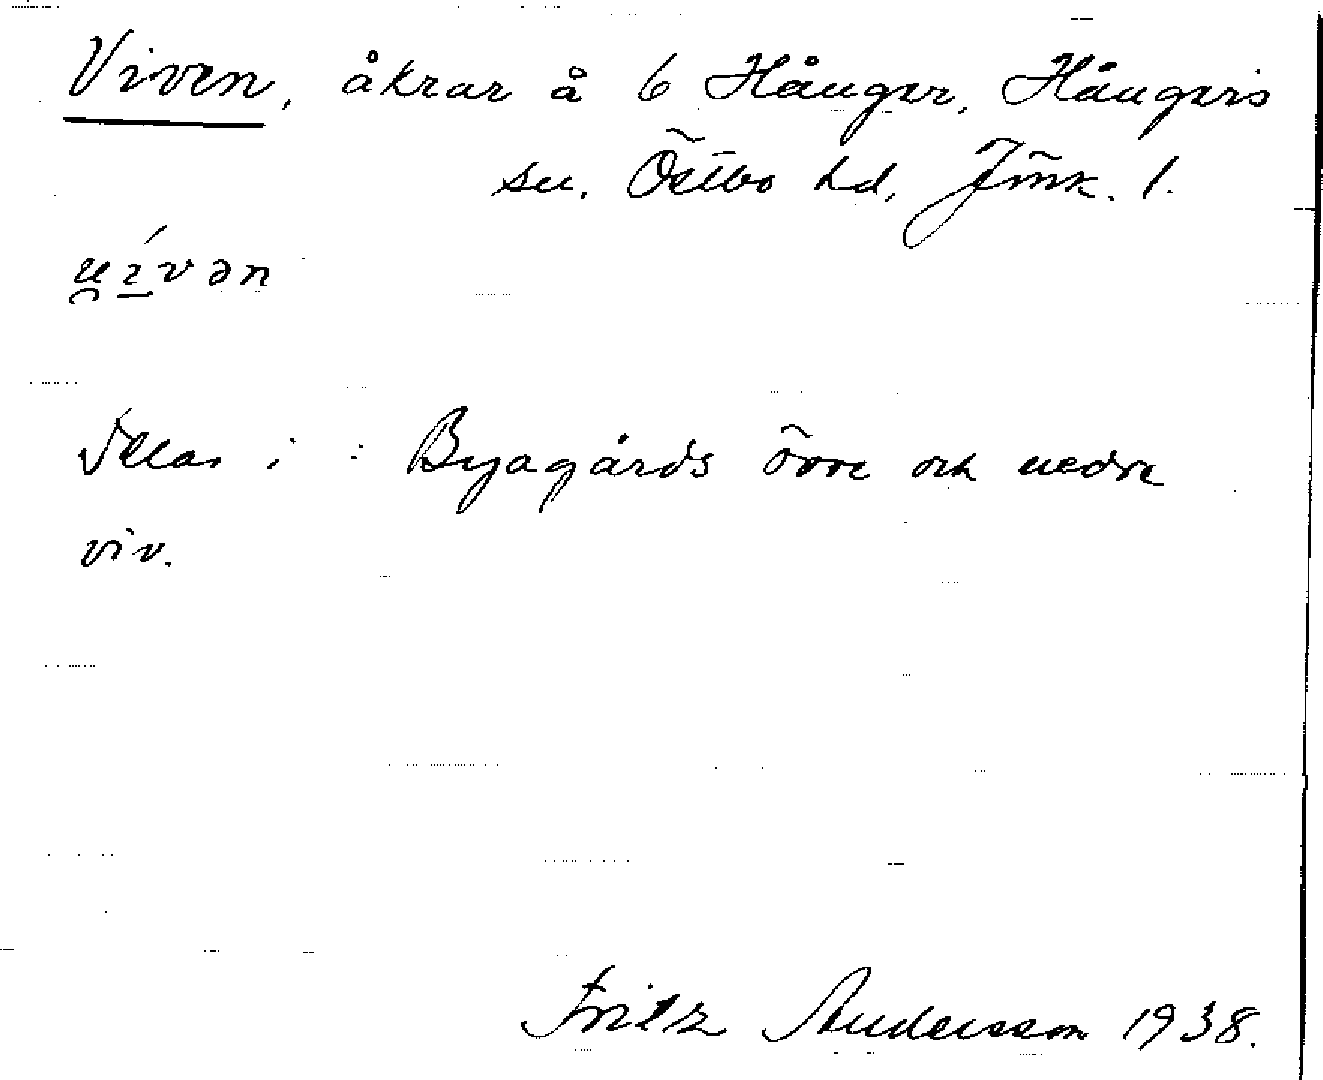 Viven, åkrar å 6 Hånger, Hångers
sn. Östbo hd, Jönk. l.
u̯ì̱vən
Delas i : Byagårds övre och nedre
viv.
Fritz Andersson 1938.